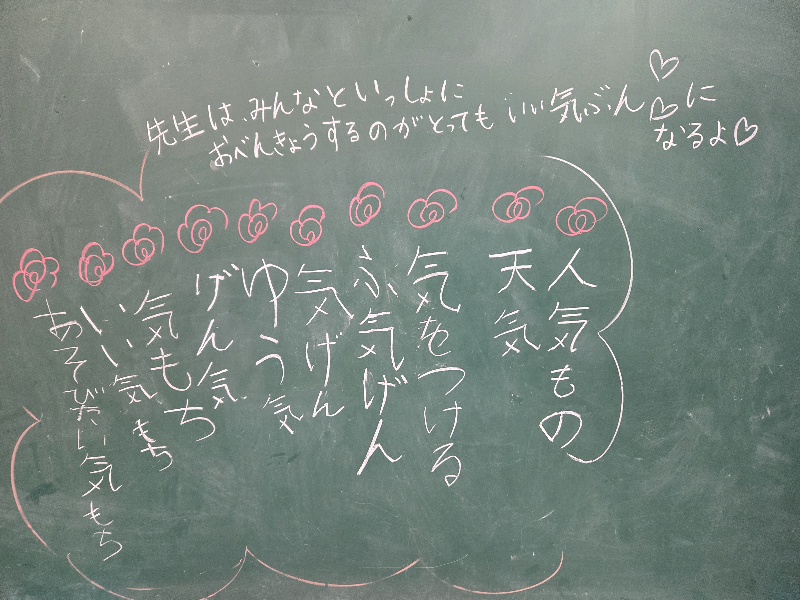 先生は、みんなといっしょに
おべんきょうするのがとっても いい気ぶん♡♡に
なるよ♡
人気もの
天気
気をつける
ふ気げん
気げん
ゆう気
げん気
気もち
いい気もち
あそびたい気もち